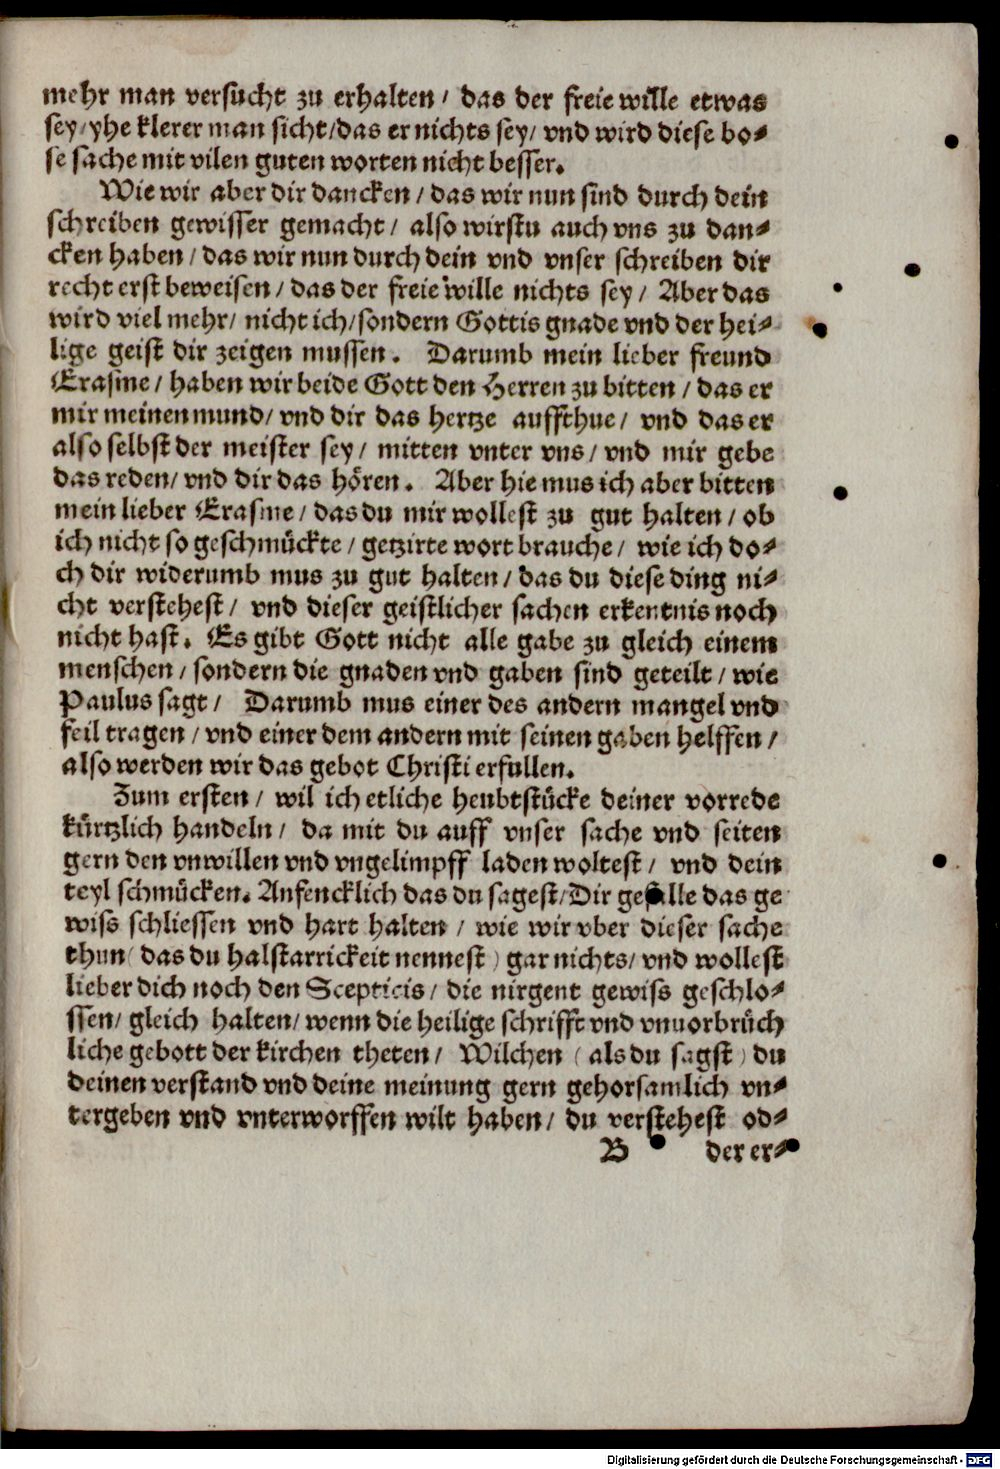 mehr man versucht zu erhalten / das der freie wille etwas
sey / yhe klerer man sicht / das er nichts sey / vnd wird diese bo⸗
se sache mit vilen guten worten nicht besser.
Wie wir aber dir dancken / das wir nun sind durch dein
schreiben gewisser gemacht / also wirstu auch vns zu dan⸗
cken haben / das wir nun durch dein vnd vnser schreiben dir
recht erst beweisen / das der freie wille nichts sey / Aber das
wird viel mehr / nicht ich / sondern Gottis gnade vnd der hei⸗
lige geist dir zeigen mussen. Darumb mein lieber freund
Erasme / haben wir beide Gott den Herren zu bitten / das er
mir meinen mund / vnd dir das hertze auffthue / vnd das er
also selbst der meister sey / mitten vnter vns / vnd mir gebe
das reden / vnd dir das hören. Aber hie mus ich aber bitten
mein lieber Erasme / das du mir wollest zu gut halten / ob
ich nicht so geschmückte / getzirte wort brauche / wie ich do⸗
ch dir widerumb mus zu gut halten / das du diese ding ni⸗
cht verstehest / vnd dieser geistlicher sachen erkentnis noch
nicht hast. Es gibt Gott nicht alle gabe zu gleich einem
menschen / sondern die gnaden vnd gaben sind geteilt / wie
Paulus sagt / Darumb mus einer des andern mangel vnd
feil tragen / vnd einer dem andern mit seinen gaben helffen /
also werden wir das gebot Christi erfullen.
Zum ersten / wil ich etliche heubtstücke deiner vorrede
kürtzlich handeln / da mit du auff vnser sache vnd seiten
gern den vnwillen vnd vngelimpff laden woltest / vnd dein
teyl schmücken. Anfencklich das du sagest / Dir gefalle das ge
wiss schliessen vnd hart halten / wie wir vber dieser sache
thun ( das du halstarrickeit nennest ) gar nichts / vnd wollest
lieber dich noch den Scepticis / die nirgent gewiss geschlo⸗
ssen / gleich halten / wenn die heilige schrifft vnd vnuorbrüch
liche gebott der kirchen theten / Wilchen ( als du sagst ) du
deinen verstand vnd deine meinung gern gehorsamlich vn⸗
tergeben vnd vnterworffen wilt haben / du verstehest od⸗
B der er⸗
Digitalisierung gefördert durch die Deutsche Forschungsgemeinschaft - DFG